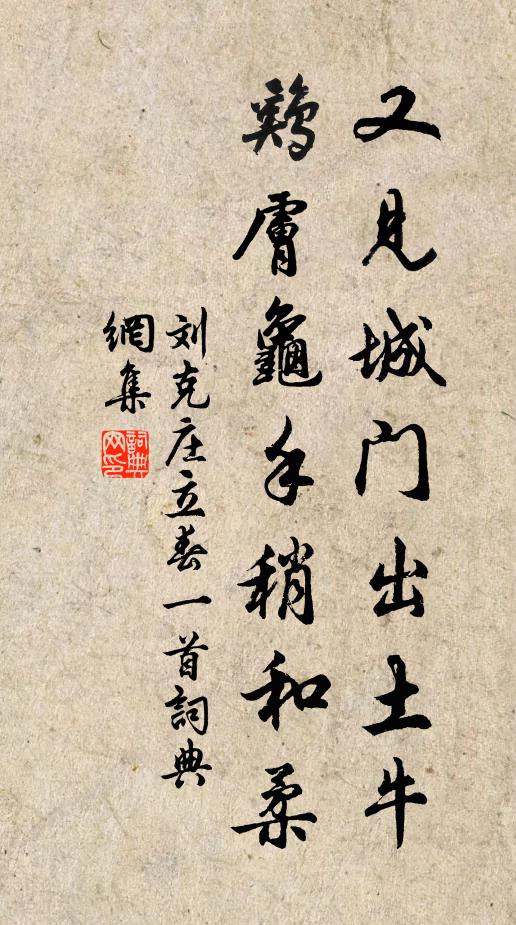 又見城门出土牛
鷄膚龜手稍和柔
刘克庄立春一首詞典
網集
詞典網印